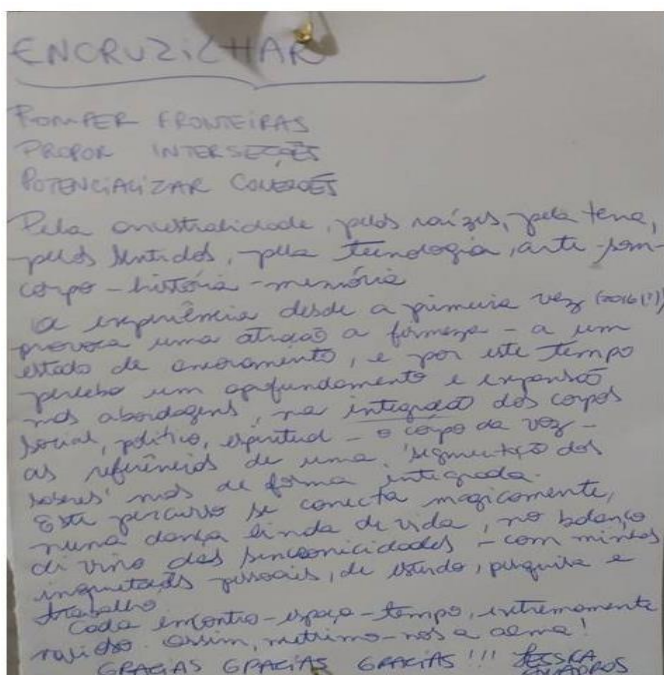 ENCRUZILHAR
ROMPER FRONTEIRAS
PROPOR INTERSECÇÕES
POTENCIALIZAR CONEXÕES
Pela ancestralidade, pelas raízes, pela terra,
pelos sentidos, pela tecnologia, arte-som-
corpo-história-memória
A experiência desde a primeira vez (2016(!))
provoca uma atração a firmeza - a um
estado de ancoramento, e por este tempo
percebo um aprofundamento e expansão
nas abordagens, na integração dos corpos
social, político, espiritual - o corpo da voz -
as referências de uma 'segmentação dos
saberes' mas de forma integrada.
Este percurso se conecta magicamente,
numa dança linda de vida, no balanço
divino das sincronicidades - com minhas
inquietações pessoais, de estudo, pesquisa e
trabalho
Cada encontro-espaço-tempo, extremamente
valioso. Assim, nutrimo-nos a alma!
GRACIAS GRACIAS GRACIAS!!!